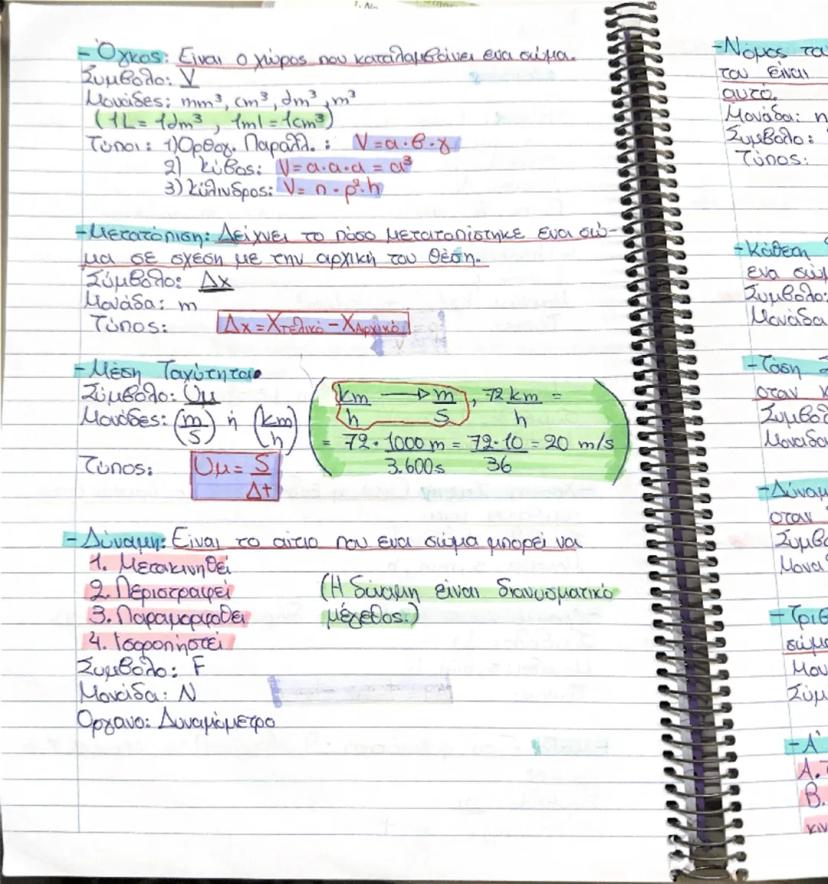 - Όγκος: Είναι ο χώρος που καταλαμβάνει ένα σώμα.
Σύμβολο: V
Μονάδες: mm³, cm³, dm³, m³
(1L = 1dm³, 1ml = 1cm³)
Τύποι: 1) Ορθογ. Παραλλ.: V = α · β · γ
2) Κύβος: V = α · α · α = α³
3) Κύλινδρος: V = π · ρ² · h
- Μετατόπιση: Δείχνει το πόσο μετατοπίστηκε ένα σώ-
μα σε σχέση με την αρχική του θέση.
Σύμβολο: Δx
Μονάδα: m
Τύπος: Δx = Xτελικό - Xαρχικό
- Μέση Ταχύτητα.
Σύμβολο: Uμ
Μονάδες: (m/s) ή (km/h)
Τύπος: Uμ = S/Δt
(km/h → m/s, 72 km/h =
= 72 · 1000 m / 3.600s = 72 · 10 / 36 = 20 m/s)
- Δύναμη: Είναι το αίτιο που ένα σώμα μπορεί να
1. Μετακινηθεί
2. Περιστραφεί
3. Παραμορφωθεί
4. Ισορροπήστεί
(Η δύναμη είναι διανυσματικό
μέγεθος.)
Σύμβολο: F
Μονάδα: N
Όργανο: Δυναμόμετρο
- Νόμος το
του είναι
αυτό.
Μονάδα:
Σύμβολο:
Τύπος:
- Κάθετη
ένα σώμ
Σύμβολο:
Μονάδα
- Τάση
όταν
Σύμβο
Μονάδ
- Δύναμ
όταν
Σύμβ
Μονα
- Τριβ
σώμ
Μον
Σύμ
- Α'
Α.
Β.
κιν